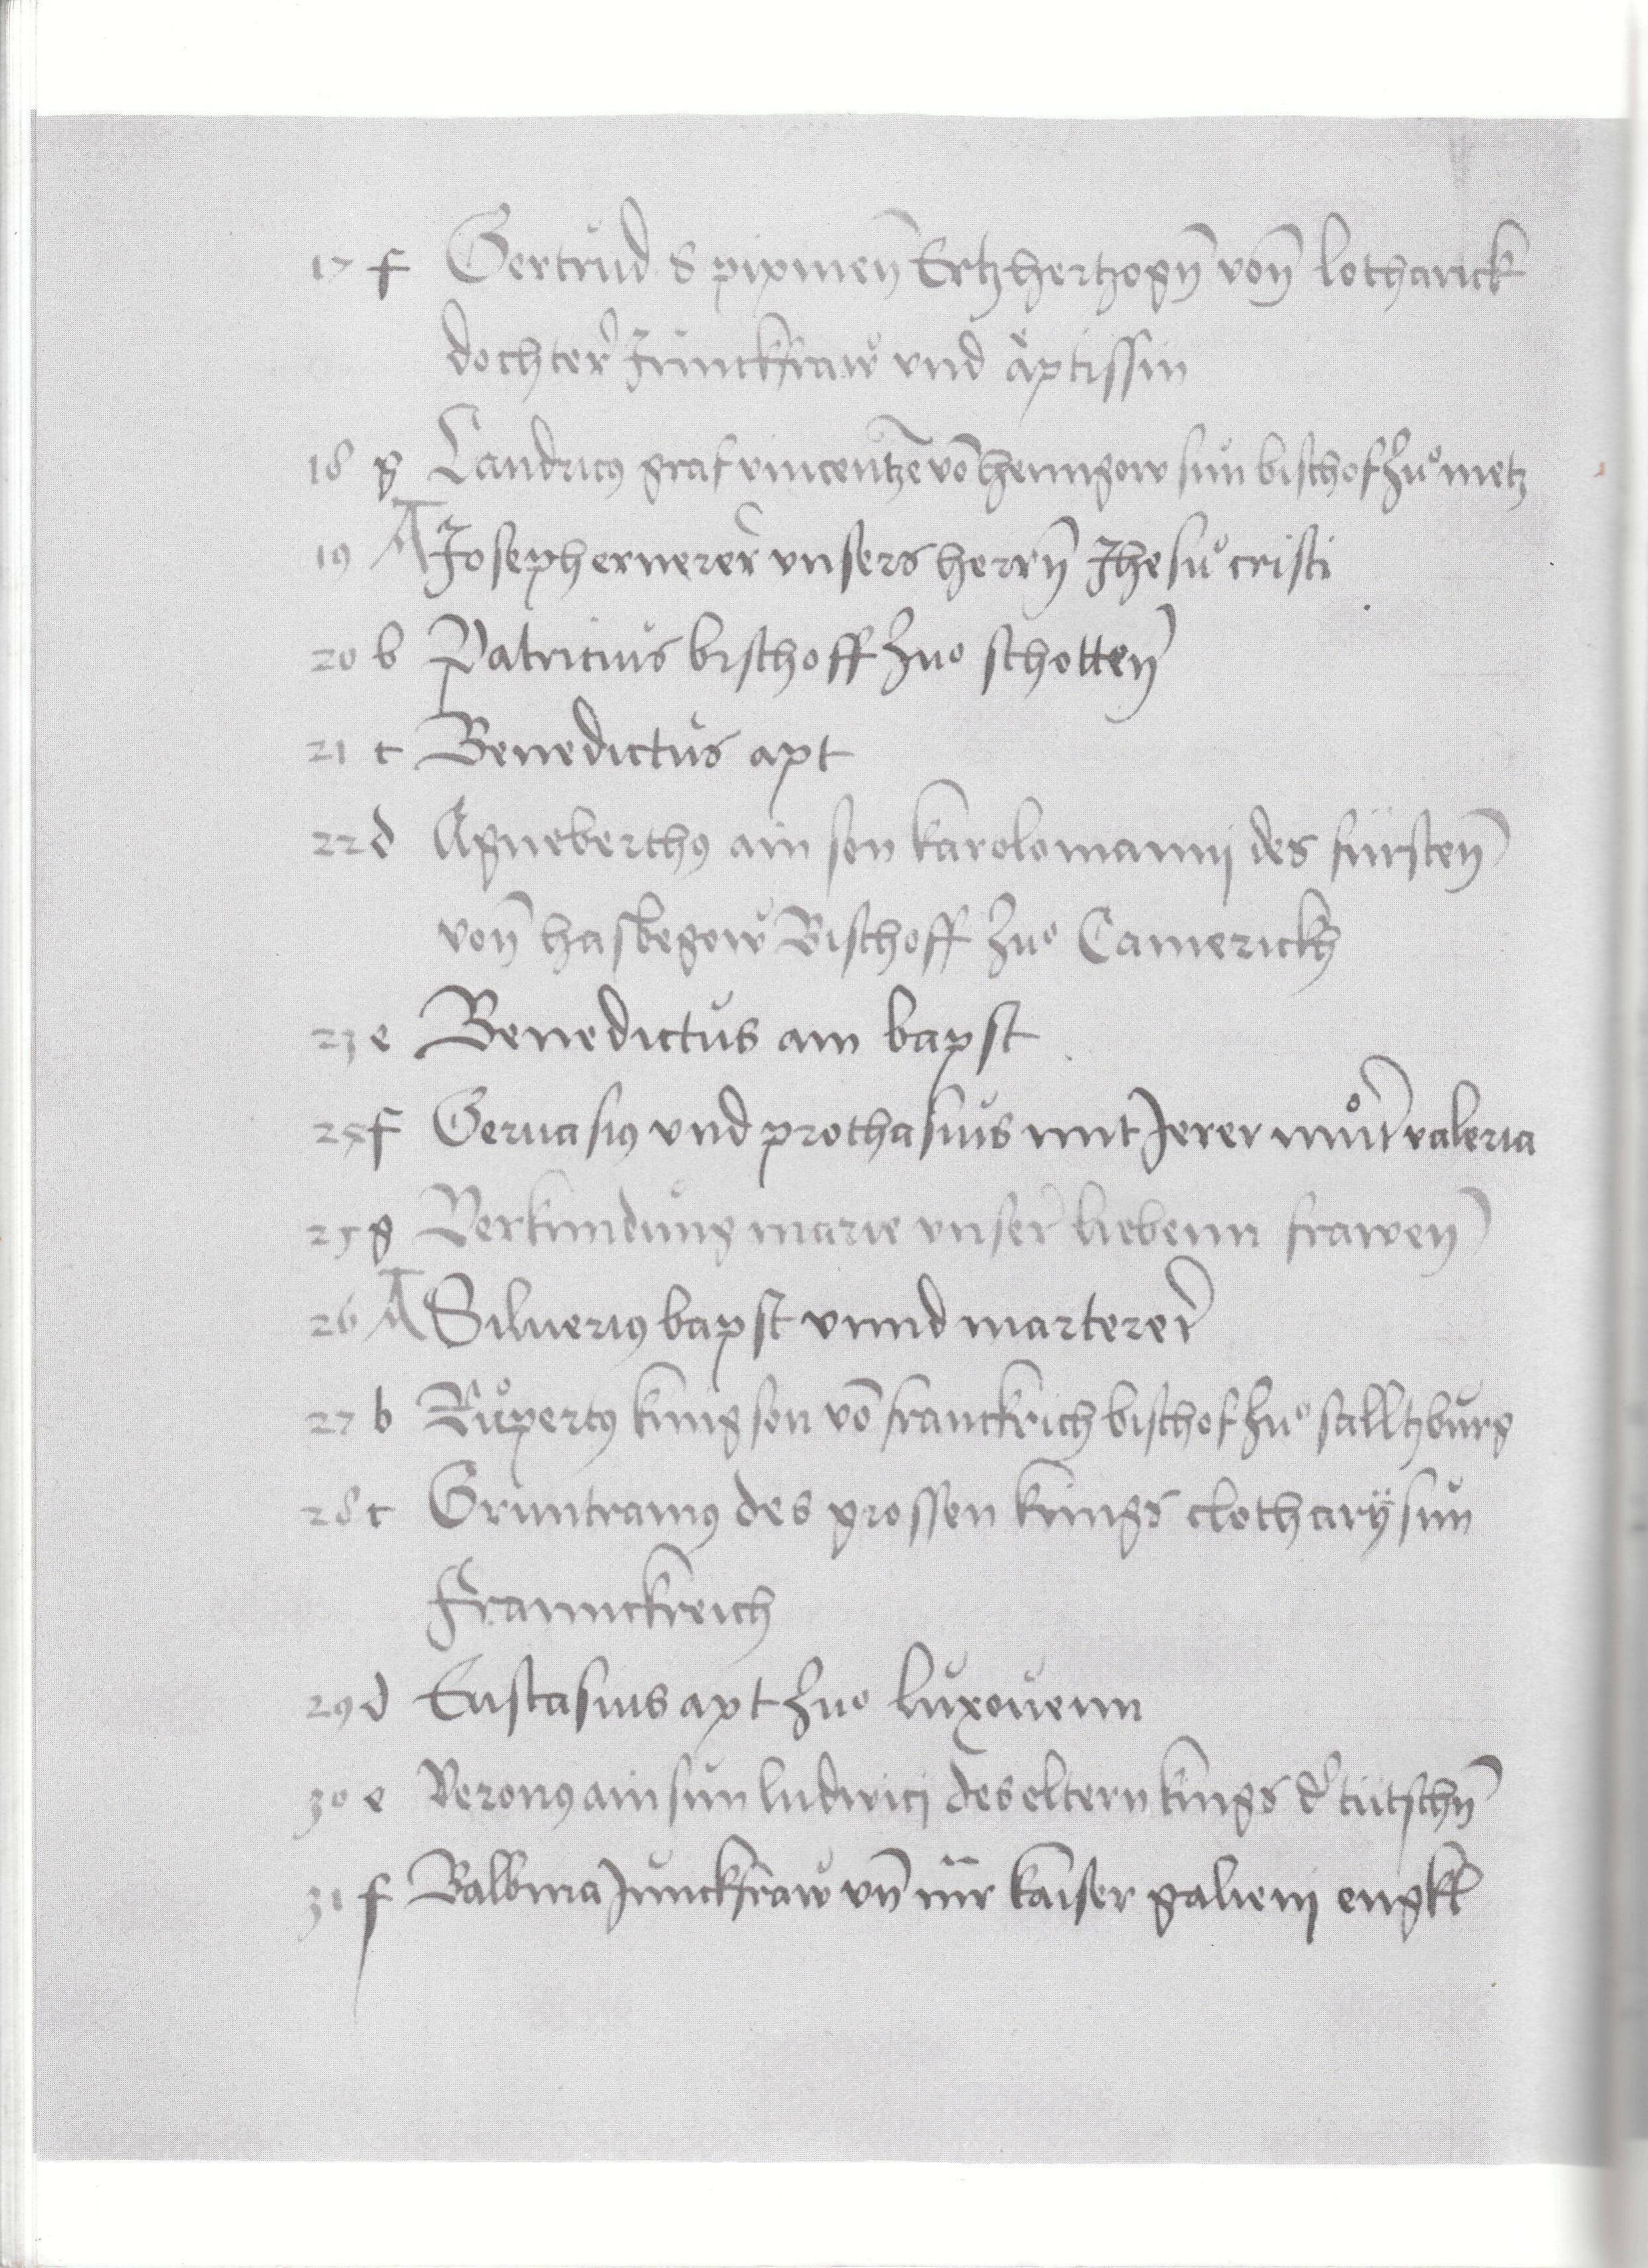 17 f Gertrud S pipinen Ertzhertzogn von lotharick
dochter Junckfraw vnd äptissin
18 g Landricus graf vincentze vō henngow sun bischof zuͦ metz
19 A Joseph ernerer vnsers herrn Jhesu cristi
20 b Patricius bischoff zuͦ schotten
21 c Benedictus apt
22 d Agneberthus ain son karolomannij des fürsten
von hasbegow Bischoff zuͦ Camerickh
23 e Benedictus ain bapst
24 f Geruasius vnd prothasius mit Jerer muͦtr valeria
25 g Verkundung marie vnser liebenn frawen
26 A Siluerius bapst vnnd marterer
27 b Ruͦpertus kunig son vō franckrich bischof zuͦ salltzburg
28 c Grintramus des grossen kings clotharÿ sun
Franckreich
29 d Eustasius apt zuͦ luxouenn
30 e Veronus ain sun ludwici des eltern kings d' tutschn
31 f Balbina Junckfraw vn̄ kaiser galienj engkl